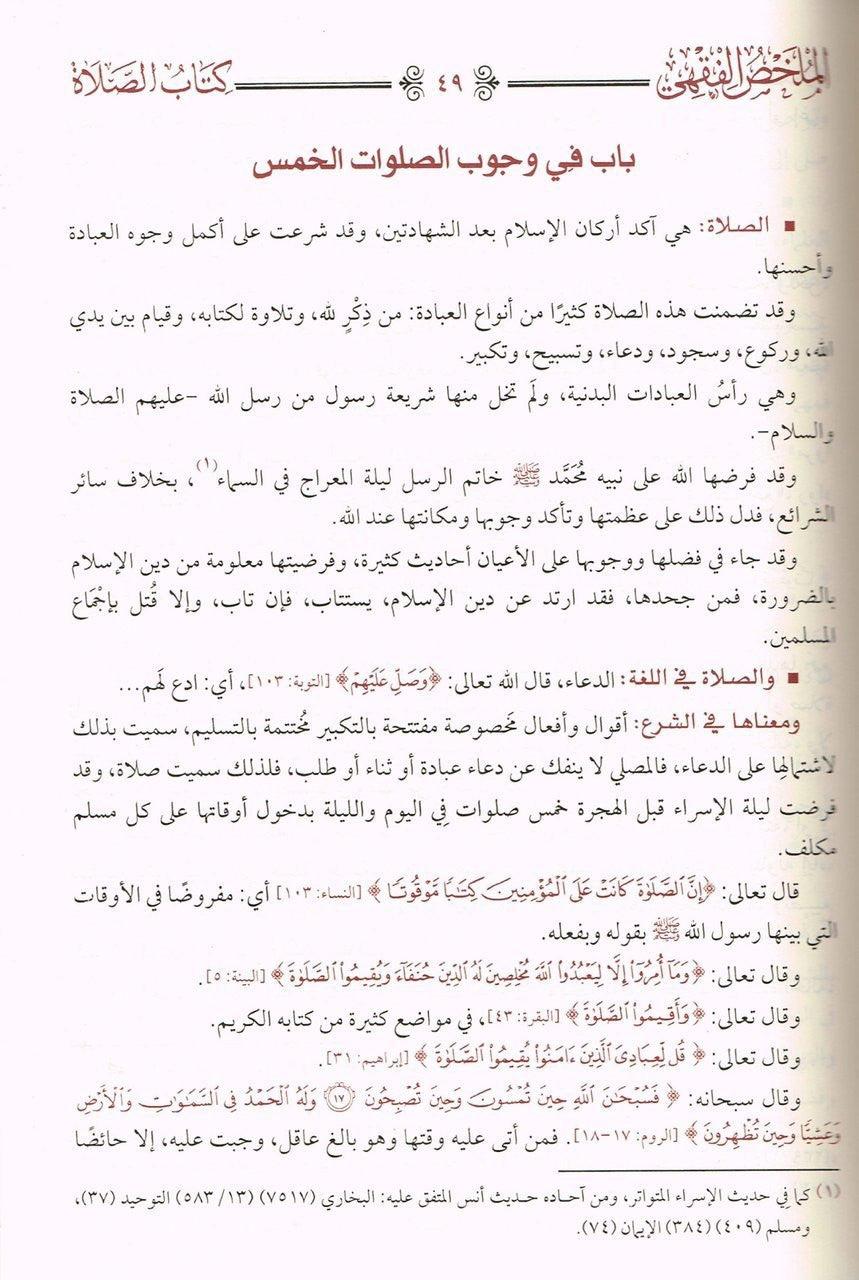 الملخص الفقهي ٤٩ كتاب الصلاة
باب في وجوب الصلوات الخمس
■ الصلاة: هي آكد أركان الإسلام بعد الشهادتين، وقد شرعت على أكمل وجوه العبادة
وأحسنها.
وقد تضمنت هذه الصلاة كثيرًا من أنواع العبادة: من ذِكْرٍ لله، وتلاوة لكتابه، وقيام بين يدي
الله، وركوع، وسجود، ودعاء، وتسبيح، وتكبير.
وهي رأسُ العبادات البدنية، ولَم تَخل منها شريعة رسول من رسل الله -عليهم الصلاة
والسلام-.
وقد فرضها الله على نبيه مُحَمَّد ﷺ خاتم الرسل ليلة المعراج في السماء(١)، بخلاف سائر
الشرائع، فدل ذلك على عظمتها وتأكد وجوبها ومكانتها عند الله.
وقد جاء في فضلها ووجوبها على الأعيان أحاديث كثيرة، وفرضيتها معلومة من دين الإسلام
بالضرورة، فمن جحدها، فقد ارتد عن دين الإسلام، يستتاب، فإن تاب، وإلا قُتل بإجْمَاع
المسلمين.
■ والصلاة في اللغة: الدعاء، قال الله تعالى: ﴿وَصَلِّ عَلَيْهِمْ﴾ [التوبة: ١٠٣]، أي: ادع لَهم...
ومعناها في الشرع: أقوال وأفعال مَخصوصة مفتتحة بالتكبير مُختتمة بالتسليم، سميت بذلك
لاشتمالِها على الدعاء، فالمصلي لا ينفك عن دعاء عبادة أو ثناء أو طلب، فلذلك سميت صلاة، وقد
فرضت ليلة الإسراء قبل الهجرة خمس صلوات فِي اليوم والليلة بدخول أوقاتها على كل مسلم
مكلف.
قال تعالى: ﴿إِنَّ ٱلصَّلَوٰةَ كَانَتْ عَلَى ٱلْمُؤْمِنِينَ كِتَٰبًا مَّوْقُوتًا﴾ [النساء: ١٠٣] أي: مفروضًا في الأوقات
التي بينها رسول الله ﷺ بقوله وبفعله.
وقال تعالى: ﴿وَمَآ أُمِرُوٓا۟ إِلَّا لِيَعْبُدُوا۟ ٱللَّهَ مُخْلِصِينَ لَهُ ٱلدِّينَ حُنَفَآءَ وَيُقِيمُوا۟ ٱلصَّلَوٰةَ﴾ [البينة: ٥].
وقال تعالى: ﴿وَأَقِيمُوا۟ ٱلصَّلَوٰةَ﴾ [البقرة: ٤٣]، في مواضع كثيرة من كتابه الكريم.
وقال تعالى: ﴿قُل لِّعِبَادِىَ ٱلَّذِينَ ءَامَنُوا۟ يُقِيمُوا۟ ٱلصَّلَوٰةَ﴾ [إبراهيم: ٣١].
وقال سبحانه: ﴿فَسُبْحَٰنَ ٱللَّهِ حِينَ تُمْسُونَ وَحِينَ تُصْبِحُونَ ١٧ وَلَهُ ٱلْحَمْدُ فِى ٱلسَّمَٰوَٰتِ وَٱلْأَرْضِ
وَعَشِيًّا وَحِينَ تُظْهِرُونَ﴾ [الروم: ١٧-١٨]. فمن أتى عليه وقتها وهو بالغ عاقل، وجبت عليه، إلا حائضًا
(١) كما فِي حديث الإسراء المتواتر، ومن آحاده حديث أنس المتفق عليه: البخاري (٧٥١٧) (١٣/ ٥٨٣) التوحيد (٣٧)،
ومسلم (٤٠٩) (٣٨٤) الإيمان (٧٤).